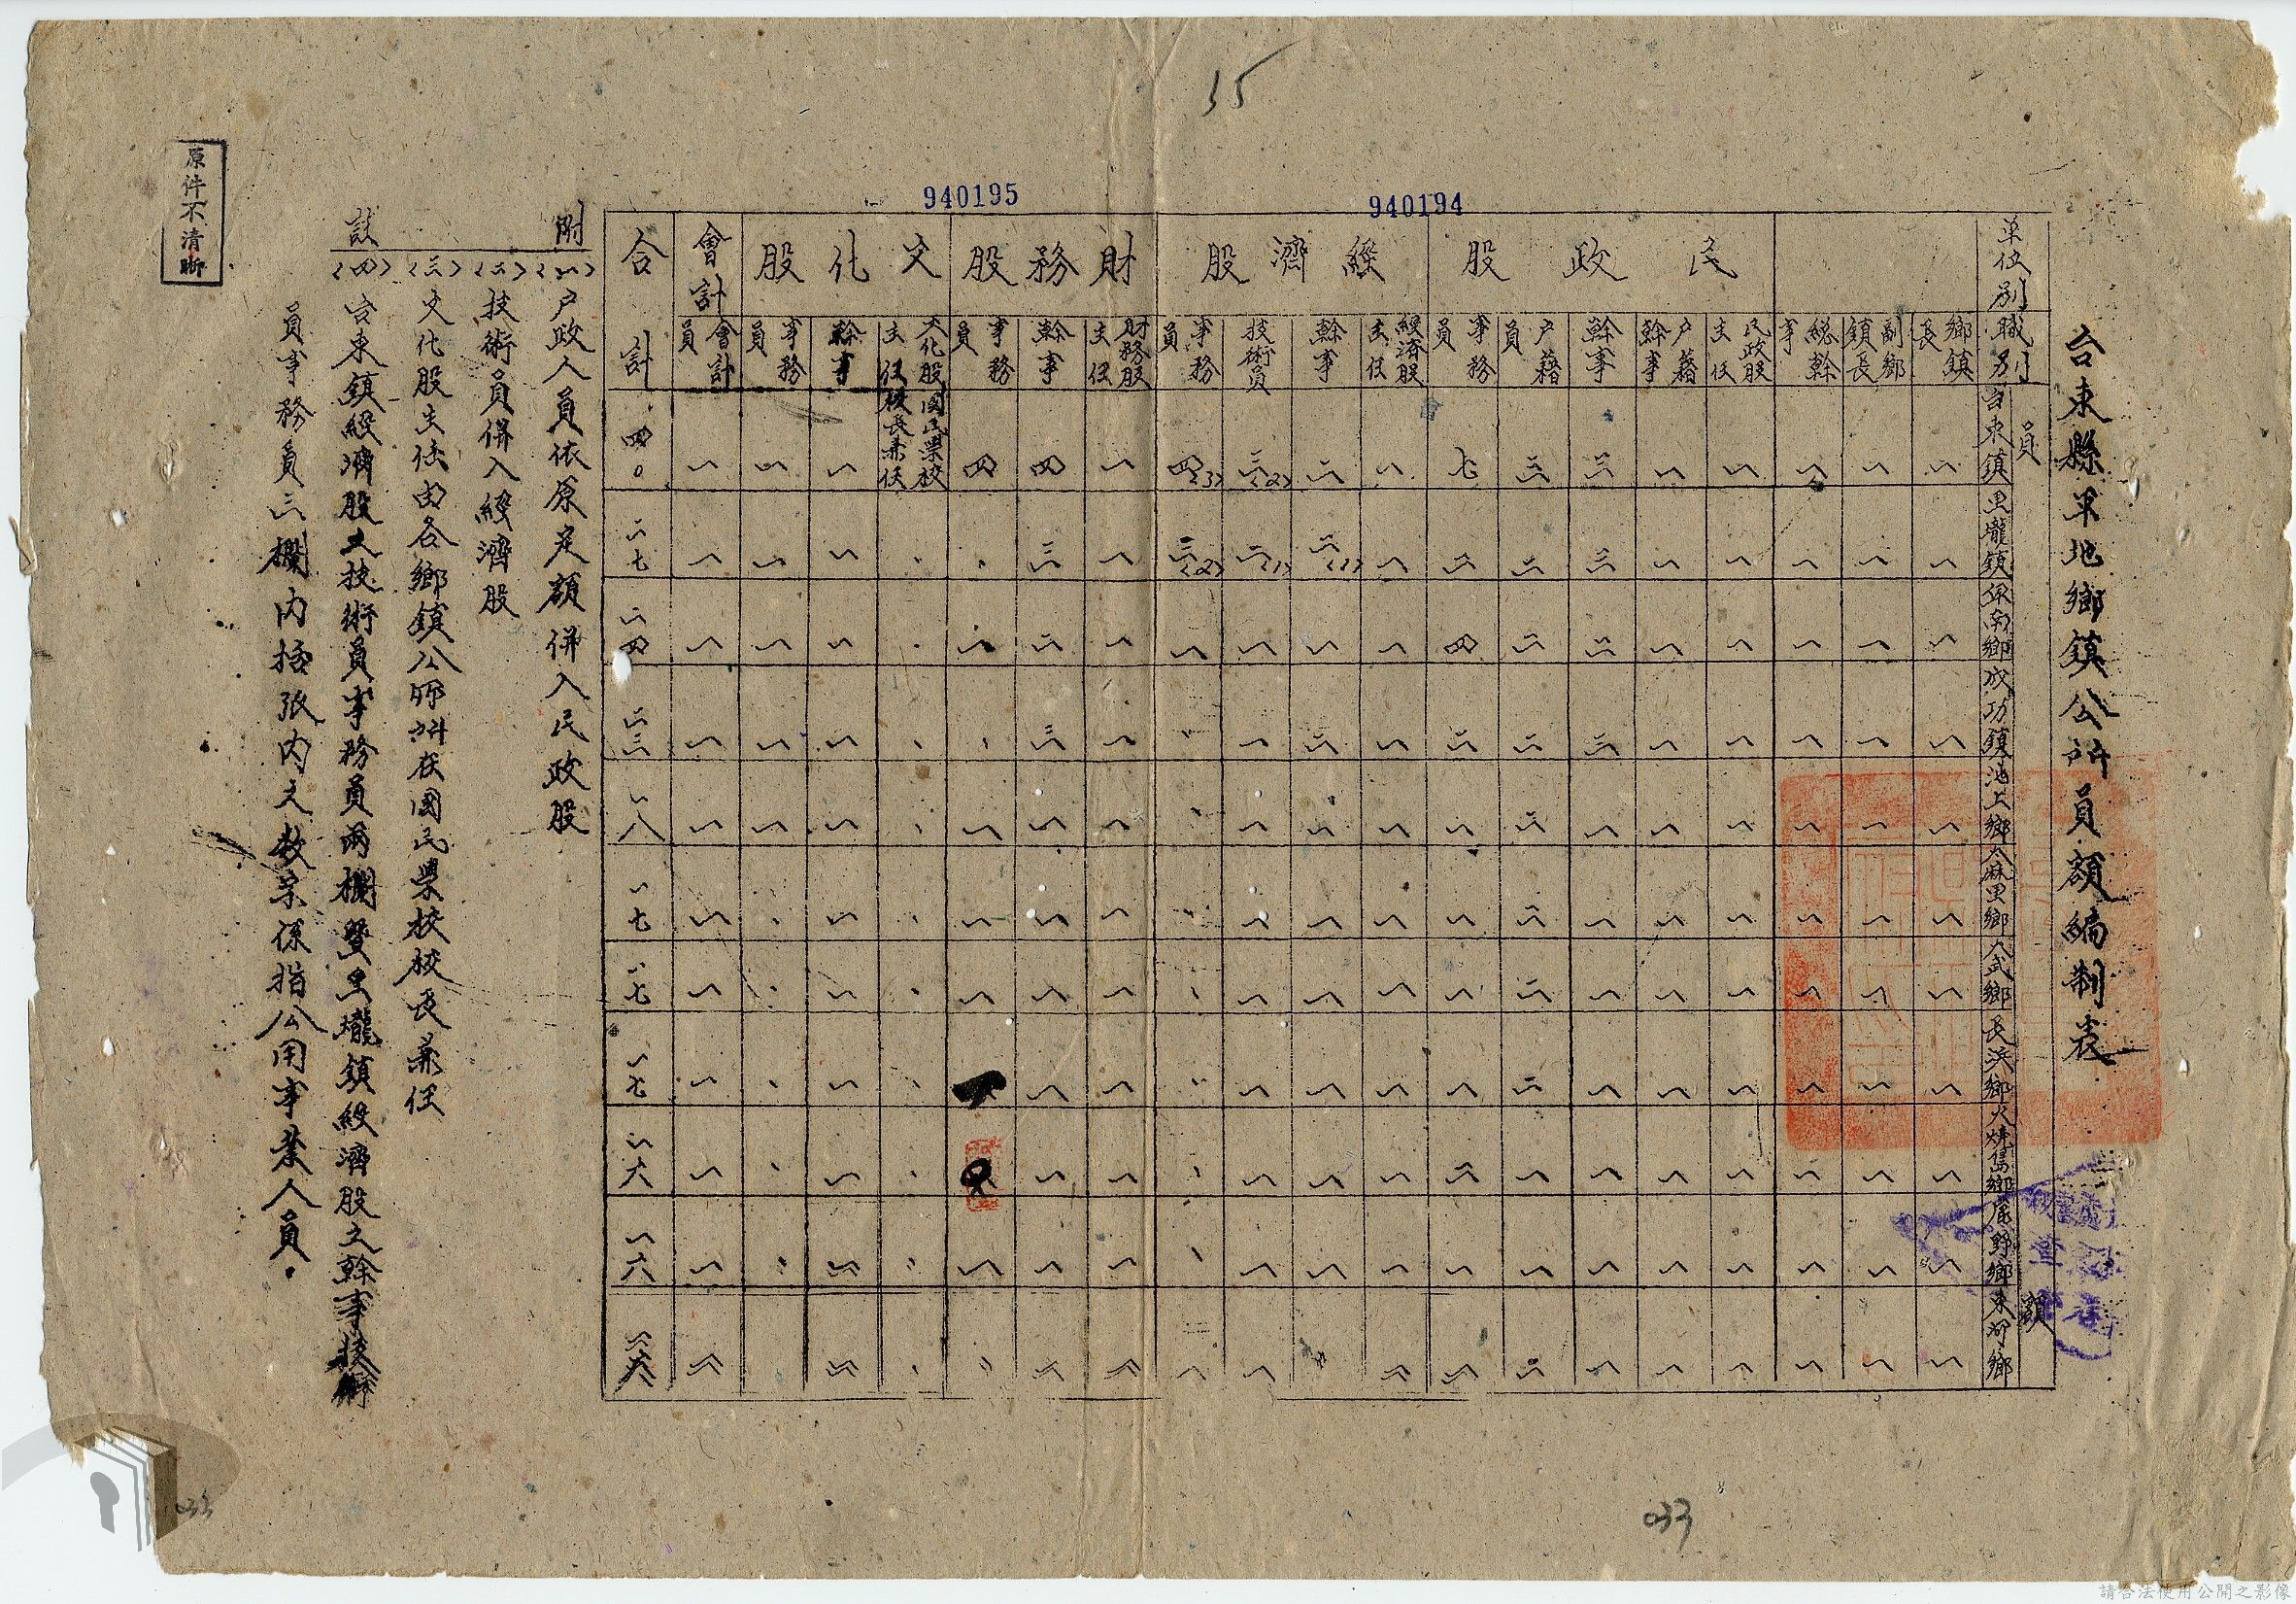 35
940195
940194
台東縣平地鄉鎮公所員額編制表
單位別
職別
員額
台東鎮
里壠鎮
卑南鄉
成功鎮
池上鄉
太麻里鄉
大武鄉
長浜鄉
火燒島鄉
鹿野鄉
東河鄉
鄉鎮長 一 一 一 一 一 一 一 一 一 一 一
副鄉鎮長 一 一 一 一 一 一 一 一 一 一 一
総幹事 一 一 一 一 一 一 一 一 一 一 一
民政股
民政股主任 一 一 一 一 一 一 一 一 一 一 一
戶籍幹事 一 一 一 一 一 一 一 一 一 一 一
幹事 三 三 二 二 一 一 一 一 一 一 一
戶籍員 三 二 二 二 二 二 二 二 一 一 二
事務員 七 二 四 二 一 一 一 一 二 一 一
經濟股
經濟股主任 一 一 一 一 一 一 一 一 一 一 一
幹事 二 二(1) 一 二 一 一 一 一 一 一
技術員 三(2) 二(1) 一 一 一 一 一 一 一 一 一
事務員 四(3) 三(2) 一 、 、 、 、 、 、 、 一
財務股
財務股主任 一 一 一 一 一 一 一 一 一 一 一
幹事 四 三 二 三 一 一 一 一 一 一 一
事務員 四 、 一 、 一 一 一 一 、 一 、
文化股
文化股主任 國民學校校長兼任 、 、 、 、 、 、 、 、 、 、
幹事 一 一 一 一 一 一 一 一 一 一 一
事務員 一 一 一 一 一 、 、 、 、 、
會計
會計員 一 一 一 一 一 一 一 一 一 一 一
合計 四〇 二七 二四 二三 一八 一七 一七 一七 一六 一六 一六
附註
(一)戶政人員依原定額併入民政股
(二)技術員併入經濟股
(三)文化股主任由各鄉鎮公所所在國民學校校長兼任
(四)台東鎮經濟股之技術員事務員兩欄暨里壠鎮經濟股之幹事技術
員事務員三欄內括弧內之數字係指公用事業人員.
原件不清晰
033
033
請合法使用公開之影像